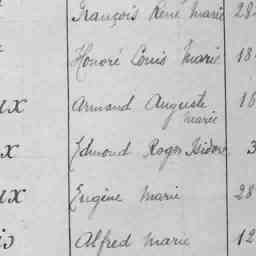 François René Marie 28
Honoré Louis Marie 18
ux Armand Auguste 16
Marie
x Edmond Roger Isidore 3
ux Eugène Marie 28
is Alfred Marie 12